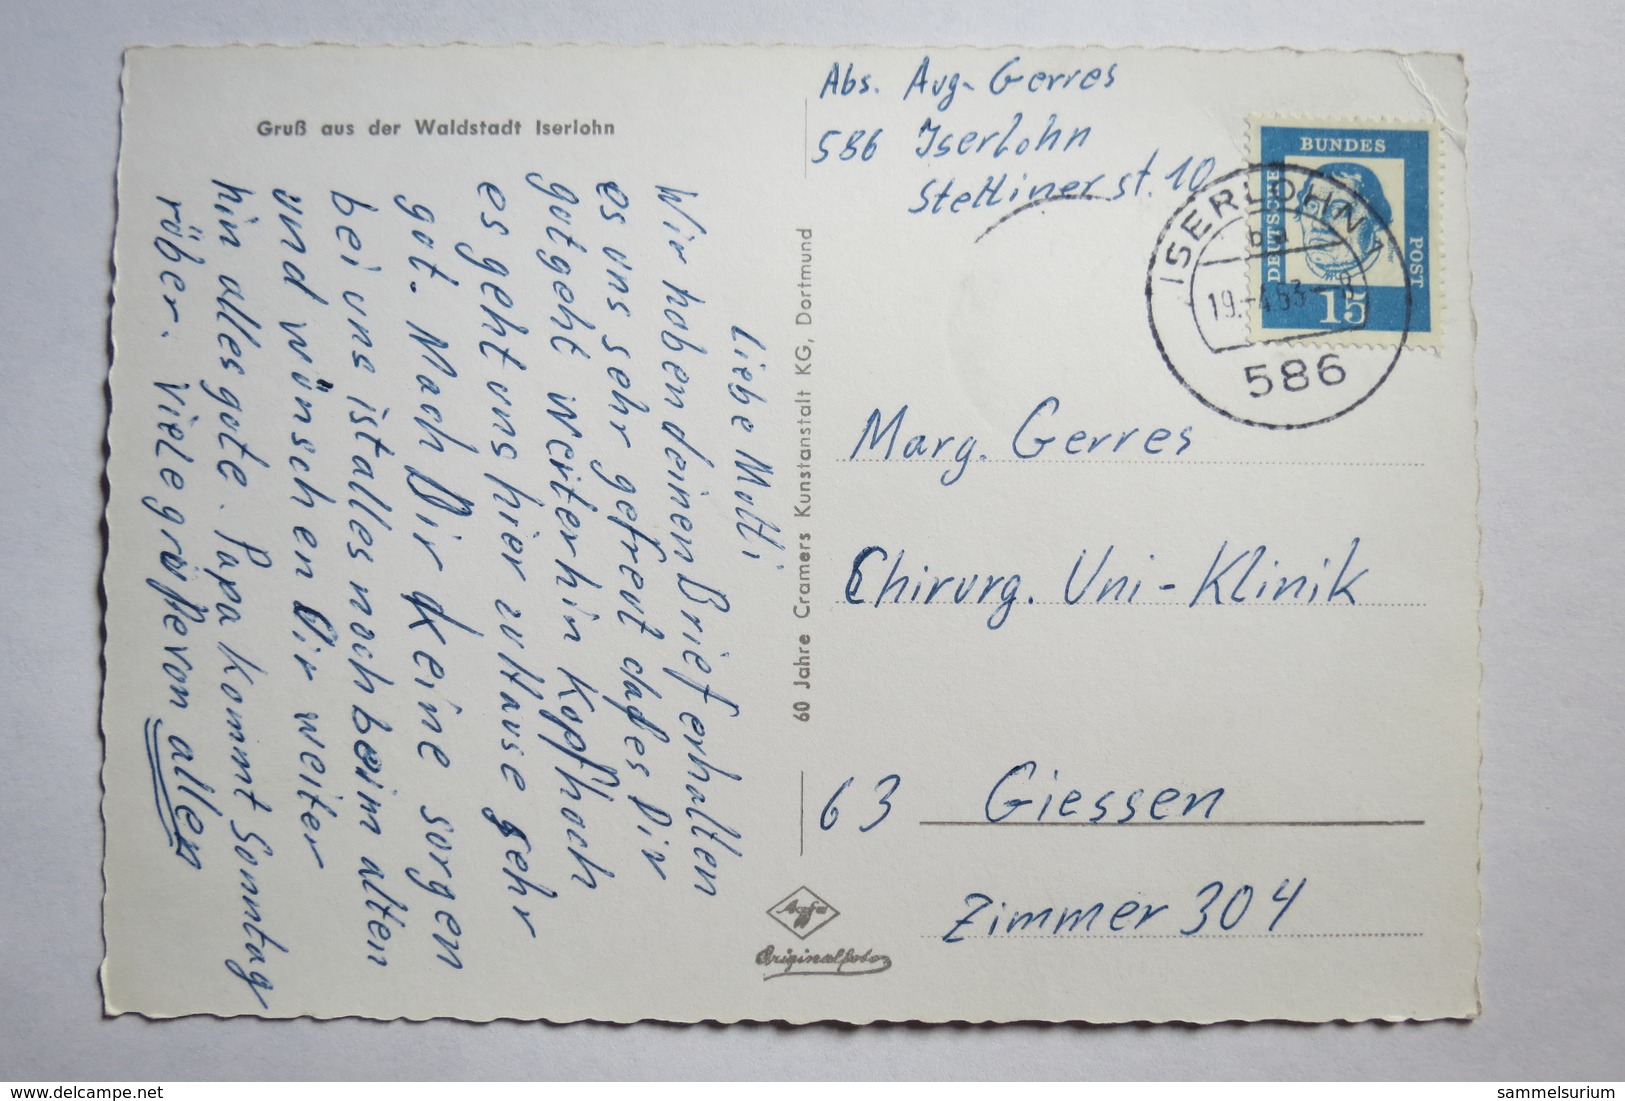 Gruß aus der Waldstadt Iserlohn
Abs. Aug. Gerres
586 Iserlohn
Stettinerst. 10
BUNDES
DEUTSCHE
POST
15
ISERLOHN 1
19.-4.63.-8
586
Liebe Mutti
Wir haben deinen Brief erhalten
es uns sehr gefreut daß es Dir
gut geht weiterhin Kopf hoch
es geht uns hier zu Hause sehr
gut. Mach Dir keine sorgen
bei uns ist alles noch beim alten
und wünschen Dir weiter
hin alles gute. Papa kommt Sonntag
rüber. Viele grüße von allen
60 Jahre Cramers Kunstanstalt KG, Dortmund
Marg. Gerres
Chirurg. Uni-Klinik
63 Giessen
Zimmer 304
Agfa
Originalfoto
delcampe.net
sammelsurium